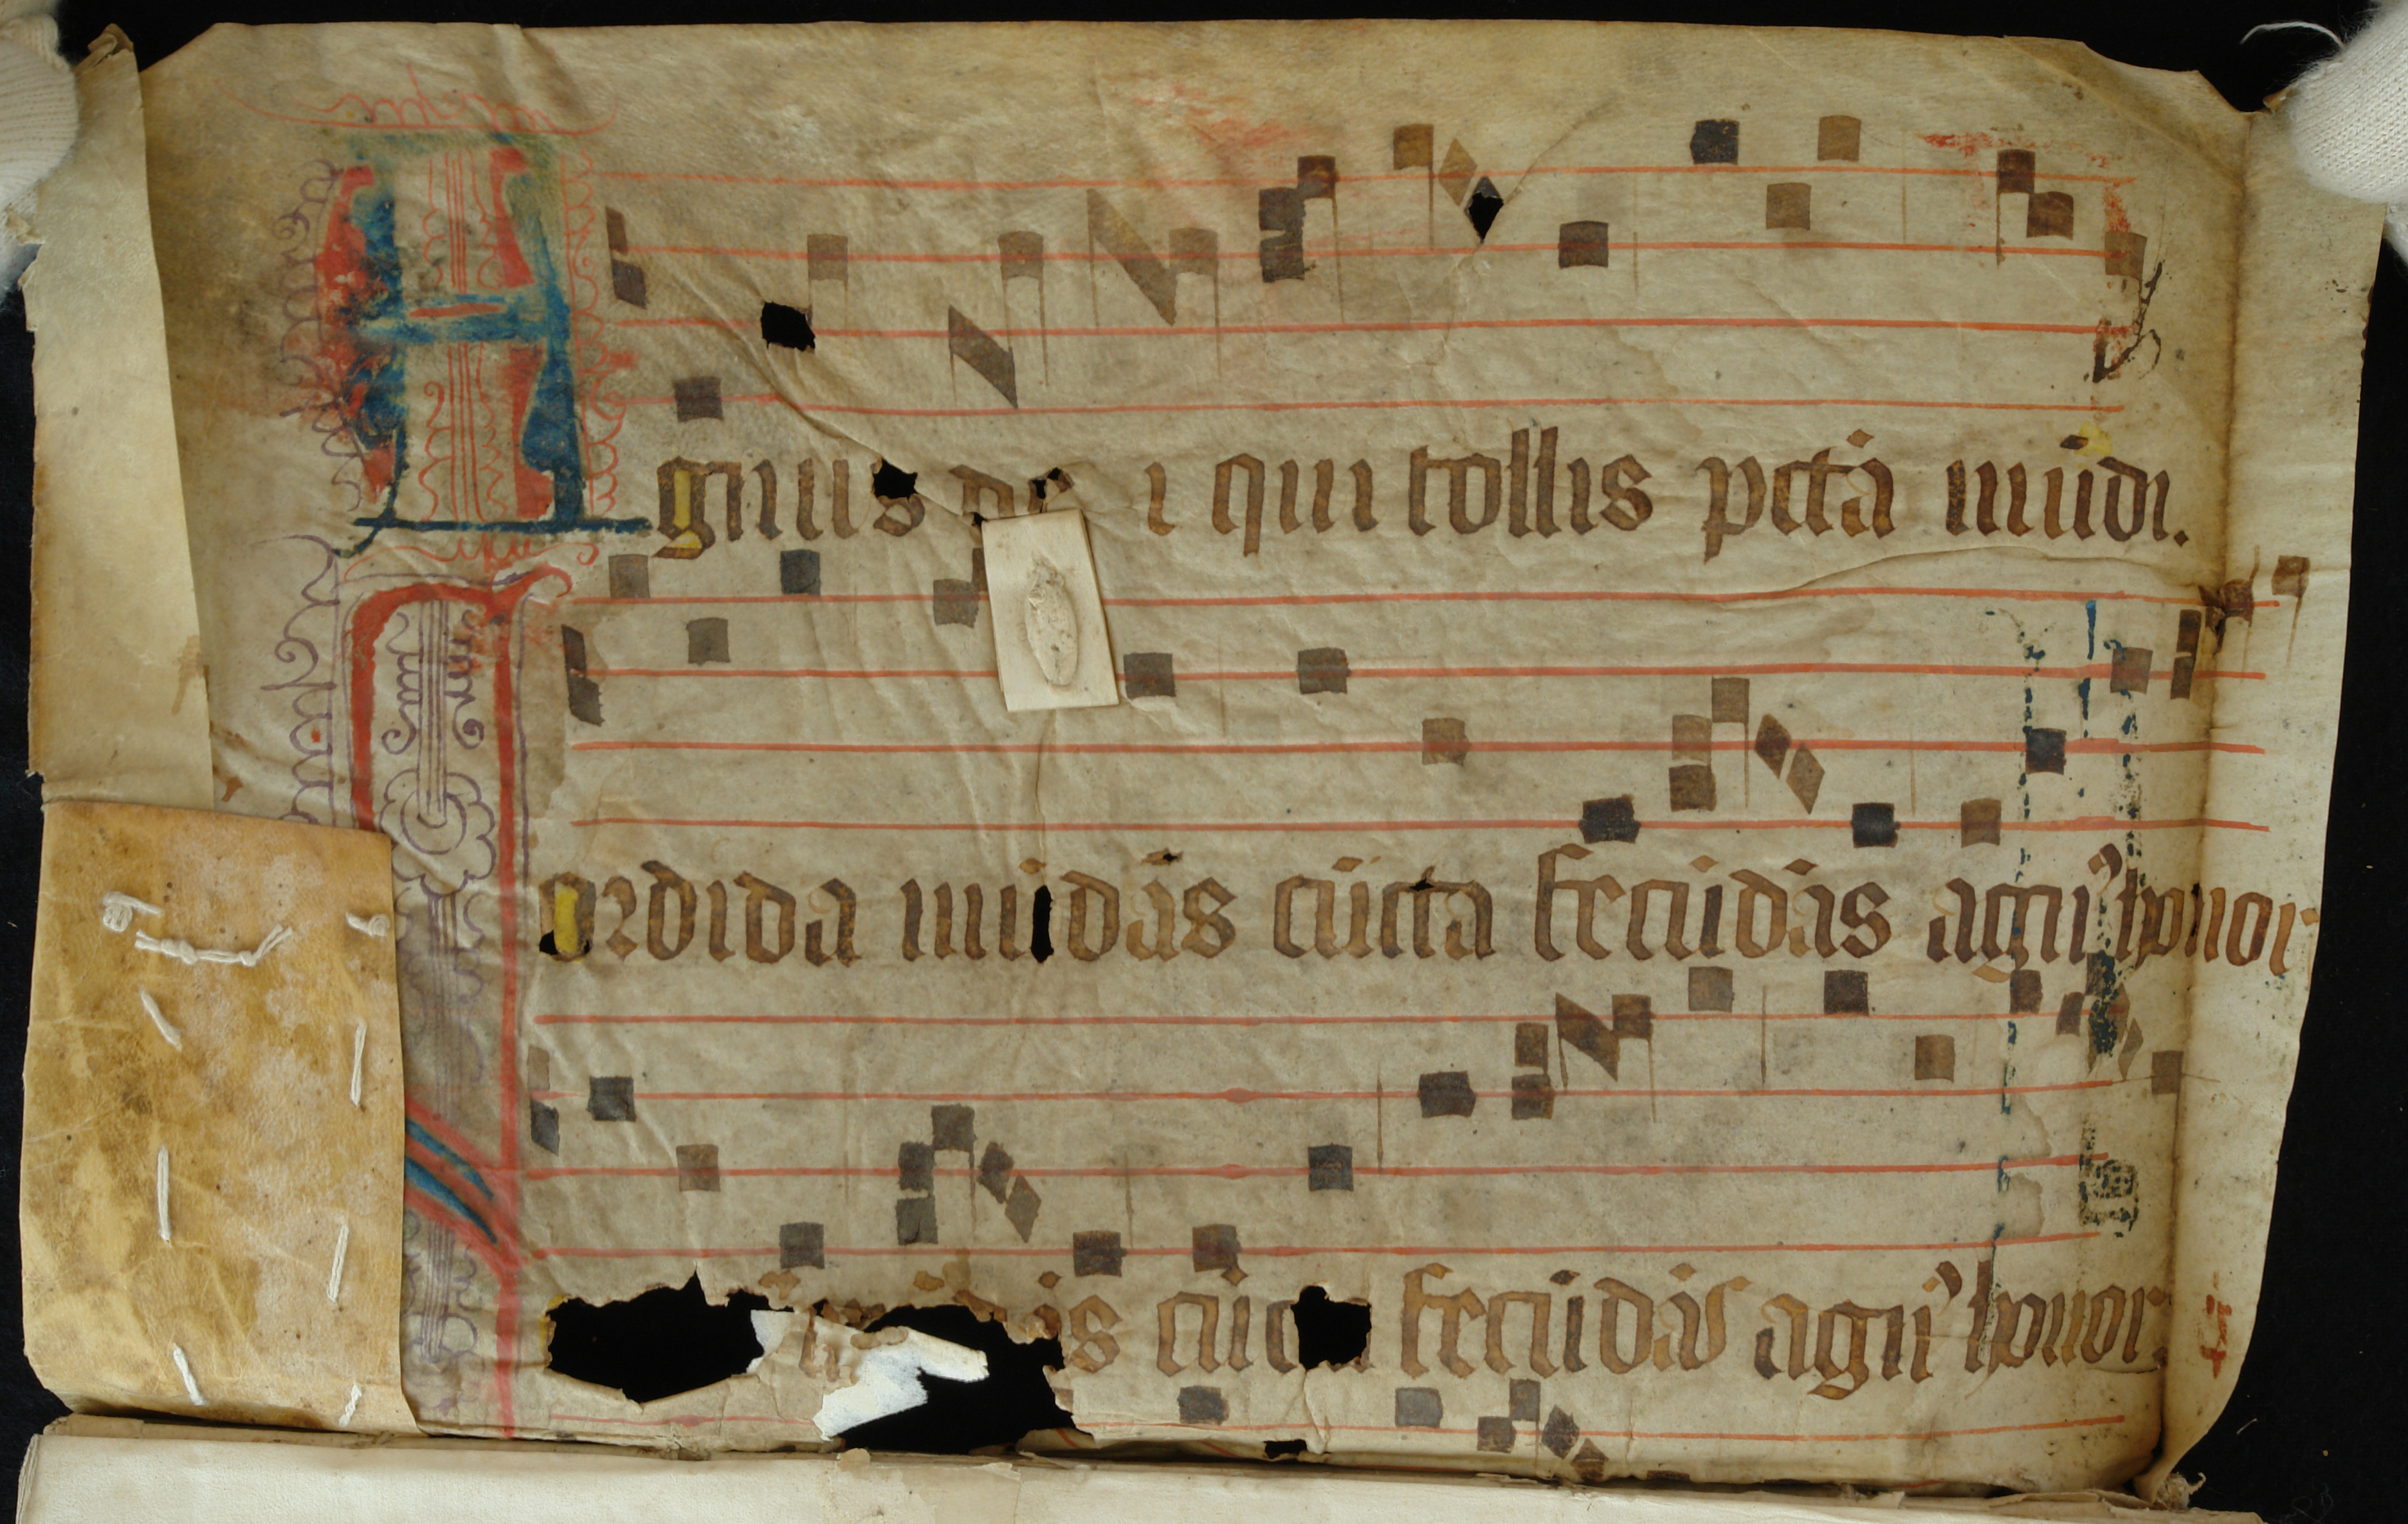 Agnus de i qui tollis pctā mūdi.
ordida mūdās cūcta fecūdās agn⁹ honor
ās cūc fecūdās agn⁹ honor.